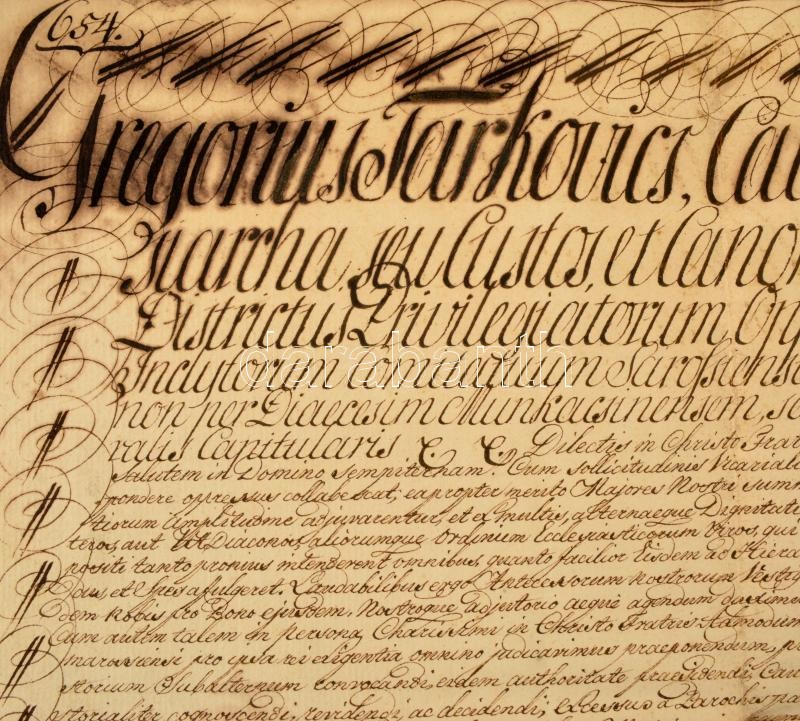 654.
Gregorius Tarkovics, Ca
siarcha, seu Custos, et Cano
Districtus Privilegiatorum Op
Inclytorum Comitatuum Sarosiens
non per Diaecesim Munkacsinensem, s
ralis Capitularis &. &. Dilectis in Christo Frat
Salutem in Domino Sempiternam. Cum sollicitudinis Vicariali
pondere oppressus collabescat; eapropter merito Majores Nostri sum
tiorum amplitudine adjuvarentur, et e multis, alternaeque Dignitat
teros, aut Diaconos aliorumque Ordinum Ecclesiasticorum Viros, qui
positi tanto pronius intenderent omnibus, quanto facilior Eisdem ac
et Spes afulgeret. Laudabilibus ergo Antecessorum Nostrorum Vestig
dem Nobis pro Bono ejusdem, Nostroque adjutorio aeque agendum
Cum autem talem in persona, Charissimi in Christo Fratris
maransiensi pro ipsa rei exigentia omnino judicavimus praeponendum, p
storium Subalternum convocandi, eidem authoritate praesidendi, Cau
storialiter cognoscendi, revidendi, ac decidendi, Excessus a Parochis pa
darabanth